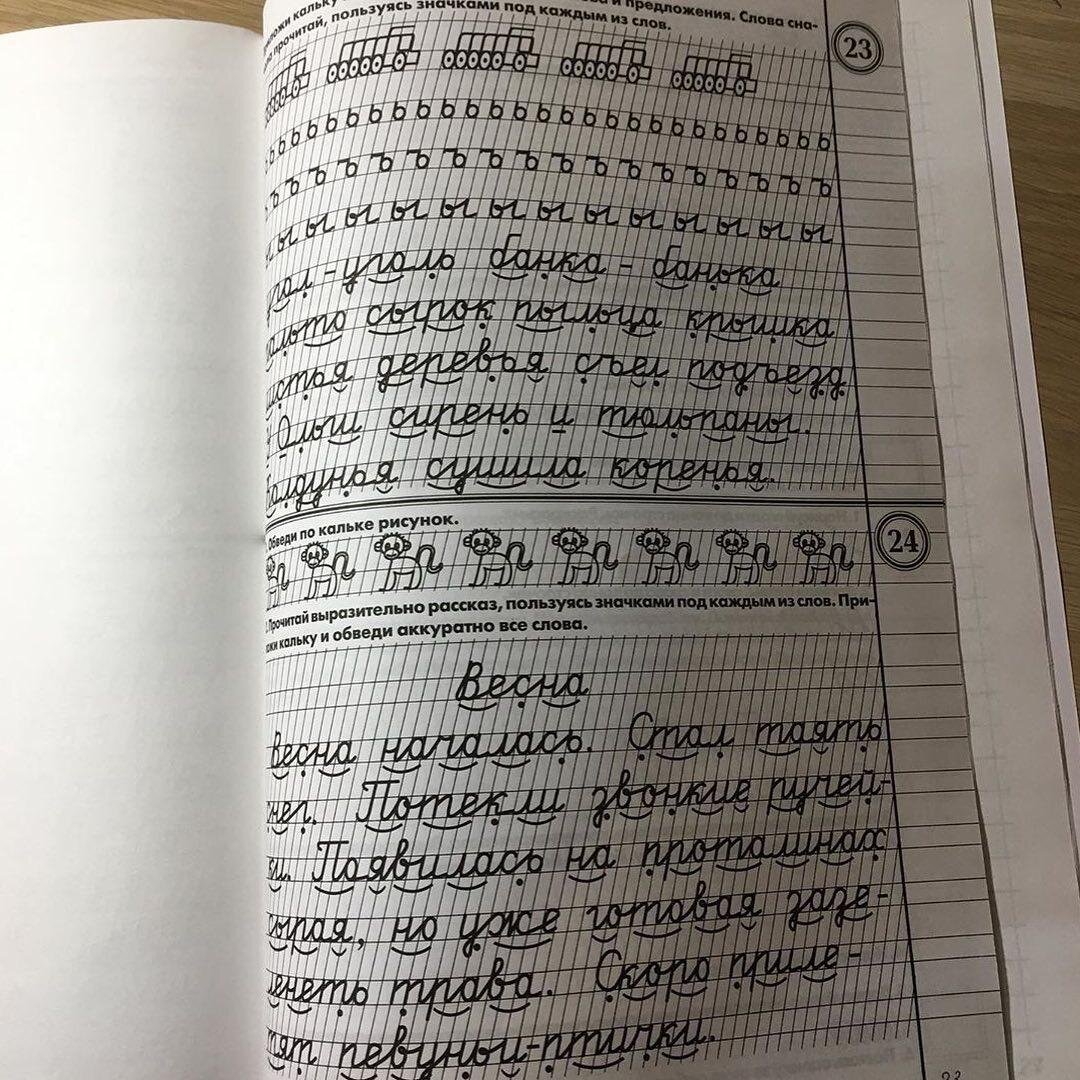 кальку и предложения. Слова сна-
прочитай, пользуясь значками под каждым из слов.
23
ь ь ь ь ь ь ь ь ь ь ь ь ь ь ь ь ь ь ь ь ь ь ь ь ь ь ь ь ь
ъ ъ ъ ъ ъ ъ ъ ъ ъ ъ ъ ъ ъ ъ ъ ъ ъ
ы ы ы ы ы ы ы ы ы ы ы ы ы
угол - уголь банка - банька
альто сырок пыльца крышка
истья деревья съел подъезд
сирень и тюльпаны.
олдунья сушила коренья.
Обведи по кальке рисунок.
24
Прочитай выразительно рассказ, пользуясь значками под каждым из слов. При-
жи кальку и обведи аккуратно все слова.
Весна
Весна началась. Стал таять
снег. Потекли звонкие ручей-
ки. Появилась на проталинах
сырая, но уже готовая зазе-
ленеть трава. Скоро приле-
тят певуньи-птички.